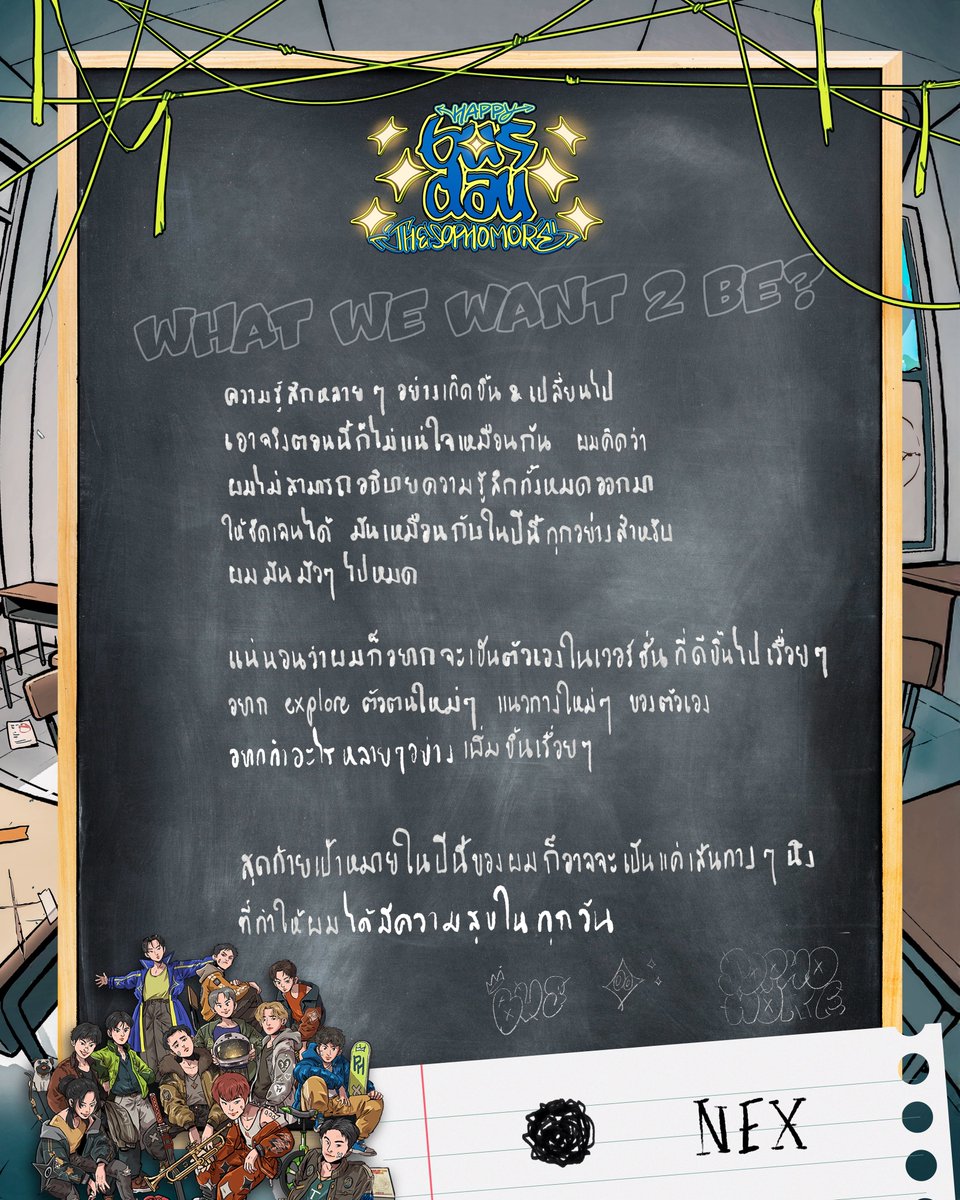 HAPPY
BUS
เดย์
THE SOPHOMORE
WHAT WE WANT 2 BE?
ความรู้สึกหลาย ๆ อย่างเกิดขึ้น & เปลี่ยนไป
เอาจริงตอนนี้ก็ไม่แน่ใจเหมือนกัน ผมคิดว่า
ผมไม่สามารถอธิบายความรู้สึกทั้งหมดออกมา
ให้ชัดเจนได้ มันเหมือนกับในปีนี้ทุกอย่างสำหรับ
ผมมันมัวๆ ไปหมด
แน่นอนว่าผมก็อยากจะเป็นตัวเองในเวอร์ชั่นที่ดีขึ้นไปเรื่อยๆ
อยาก explore ตัวตนใหม่ๆ แนวทางใหม่ๆ ของตัวเอง
อยากทำอะไรหลายๆอย่าง เพิ่มขึ้นเรื่อยๆ
สุดท้ายเป้าหมายในปีนี้ของผมก็อาจจะเป็นแค่เส้นทาง ๆ นึง
ที่ทำให้ผมได้มีความสุขในทุกวัน
BUS
SOPHO
MORE
NEX